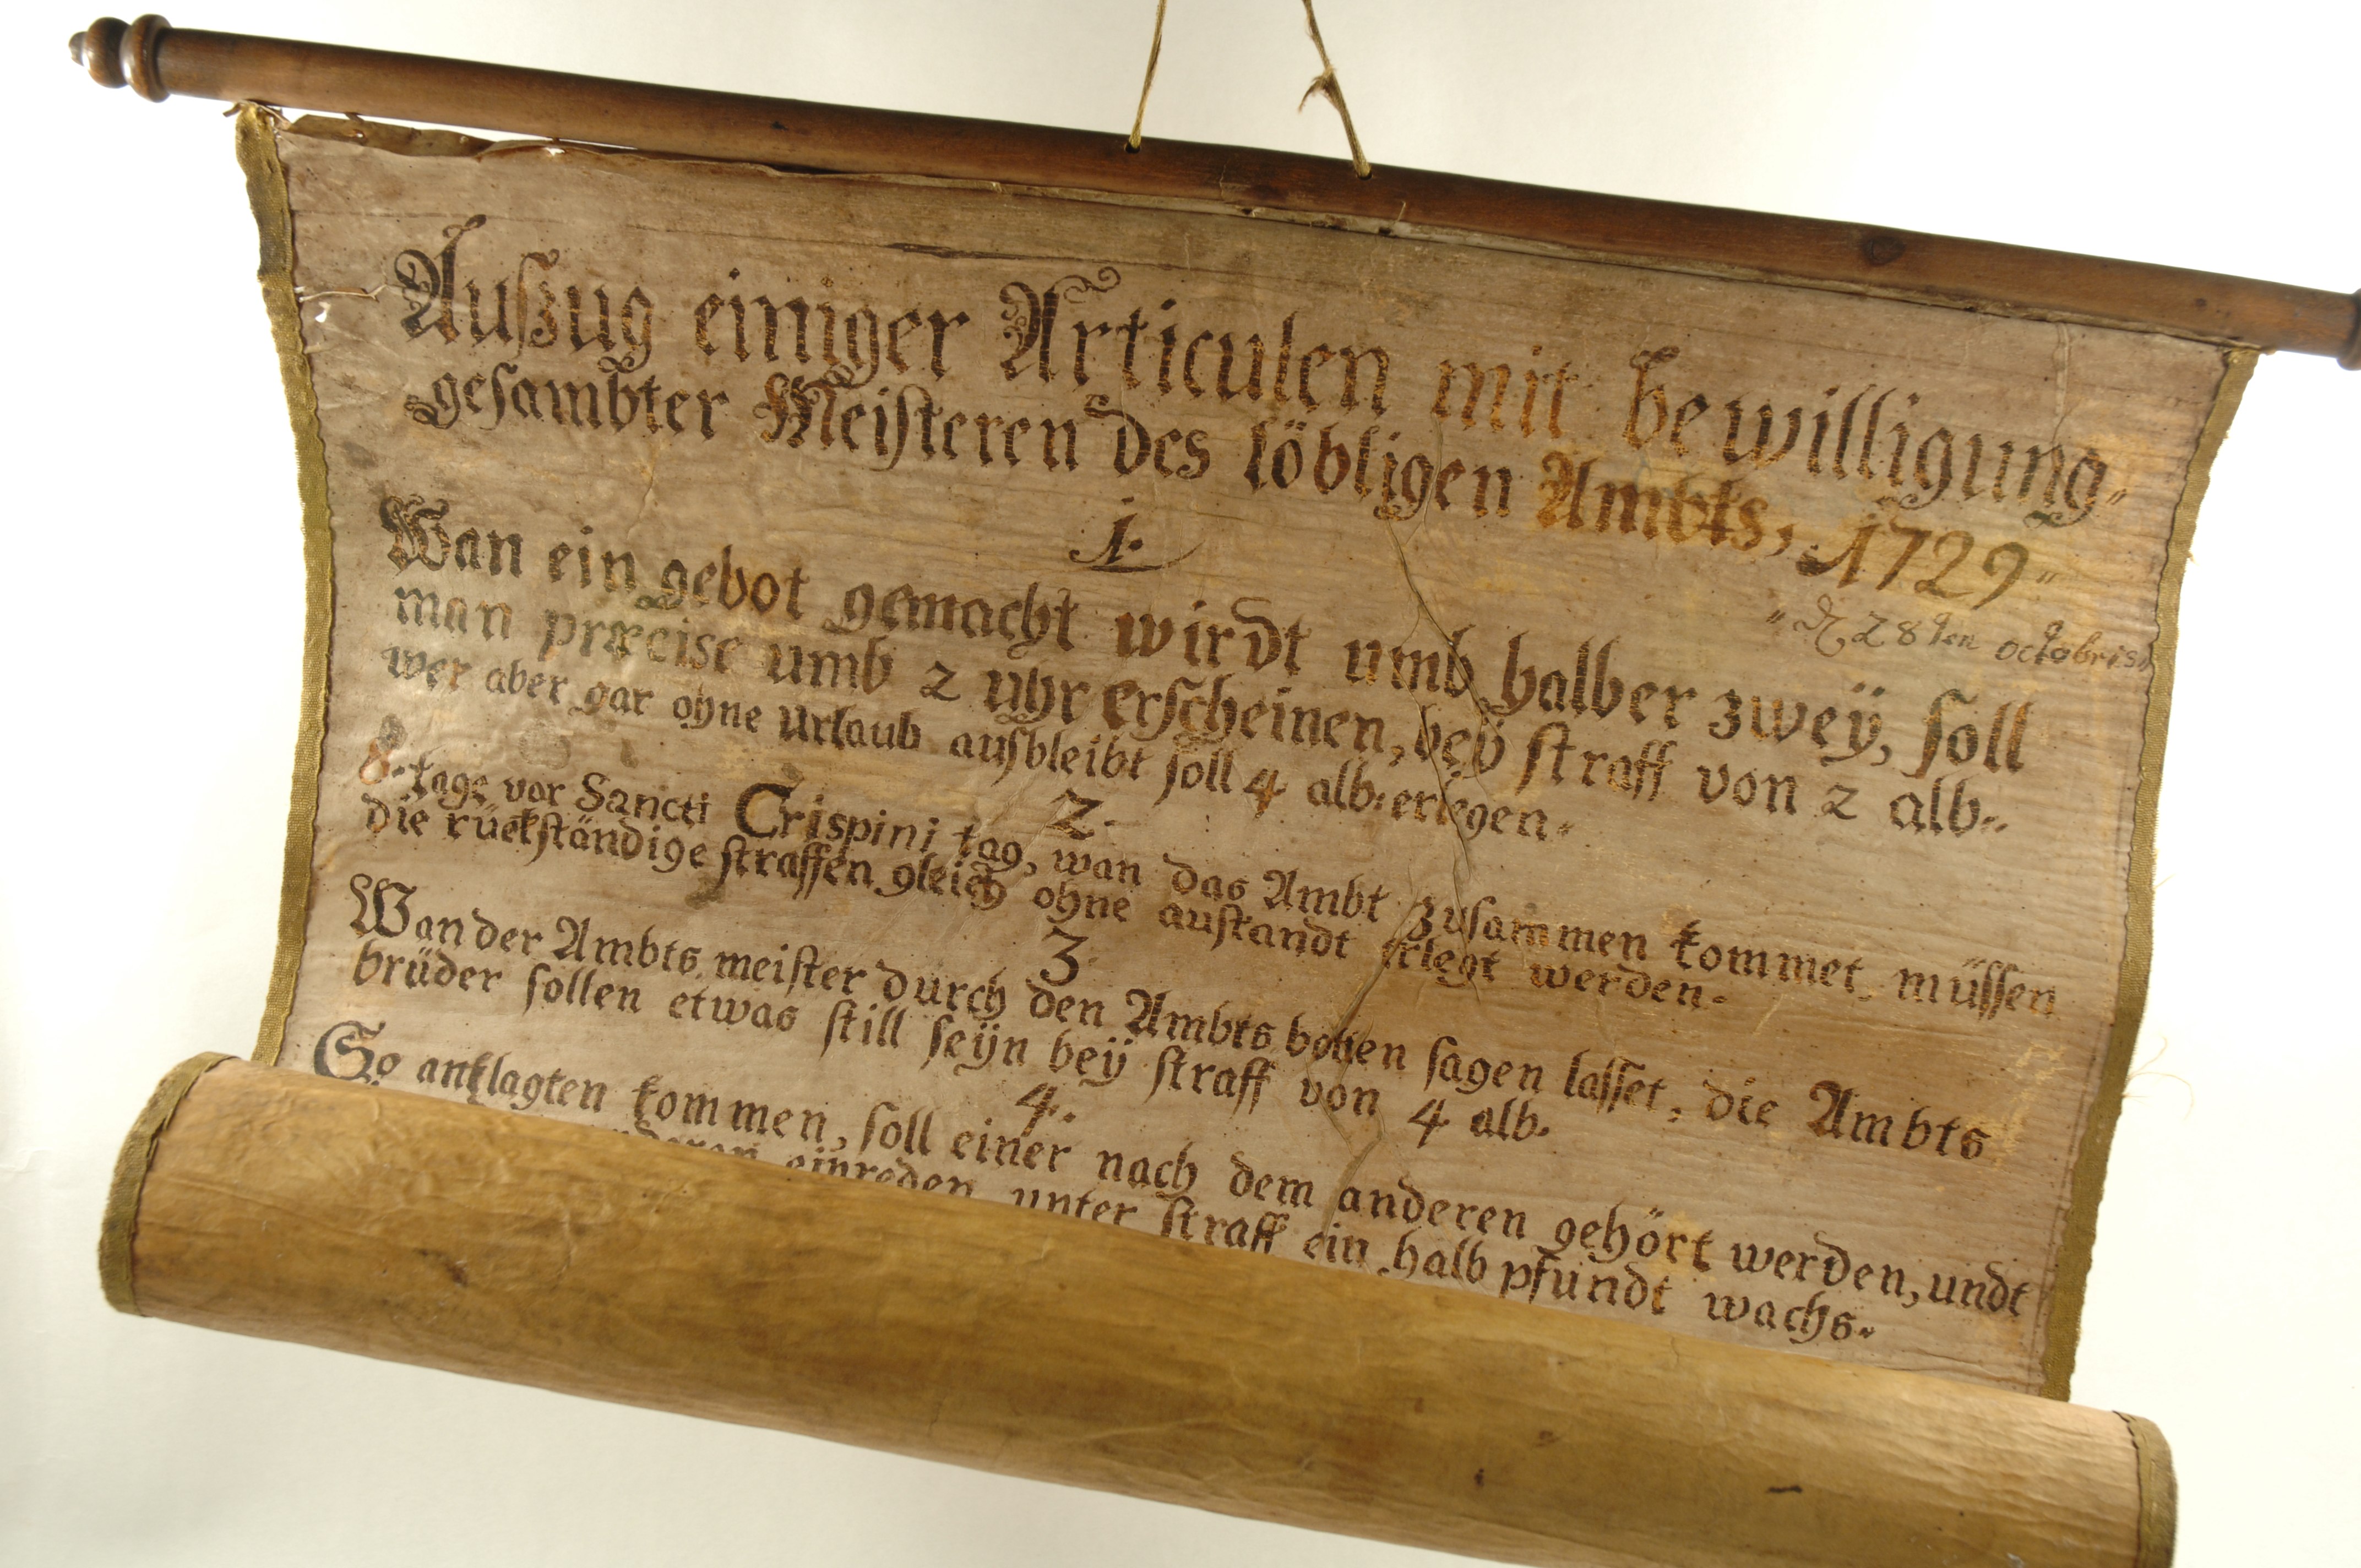 Außzug einiger Articulen mit bewilligung„
gesambter Meisteren des löbligen Ambts, 1729„
„ 28ten octobris„
1.
Wan ein gebot gemacht wirdt umb halber zweÿ, soll
man præcise umb 2 uhr erscheinen, beÿ straff von 2 alb„
wer aber gar ohne urlaub außbleibt soll 4 alb: erlegen„
2.
8. tage vor Sancti Crispini tag, wan das Ambt zusammen kommet, müssen
die rückständige straffen gleich ohne austandt erlegt werden.
3.
Wan der Ambts meister durch den Ambts botten sagen lasset, die Ambts
brüder sollen etwas still seÿn beÿ straff von 4 alb.
4.
So anklagten kommen, soll einer nach dem anderen gehört werden, undt
anderen einreden unter straff ein halb pfundt wachs„